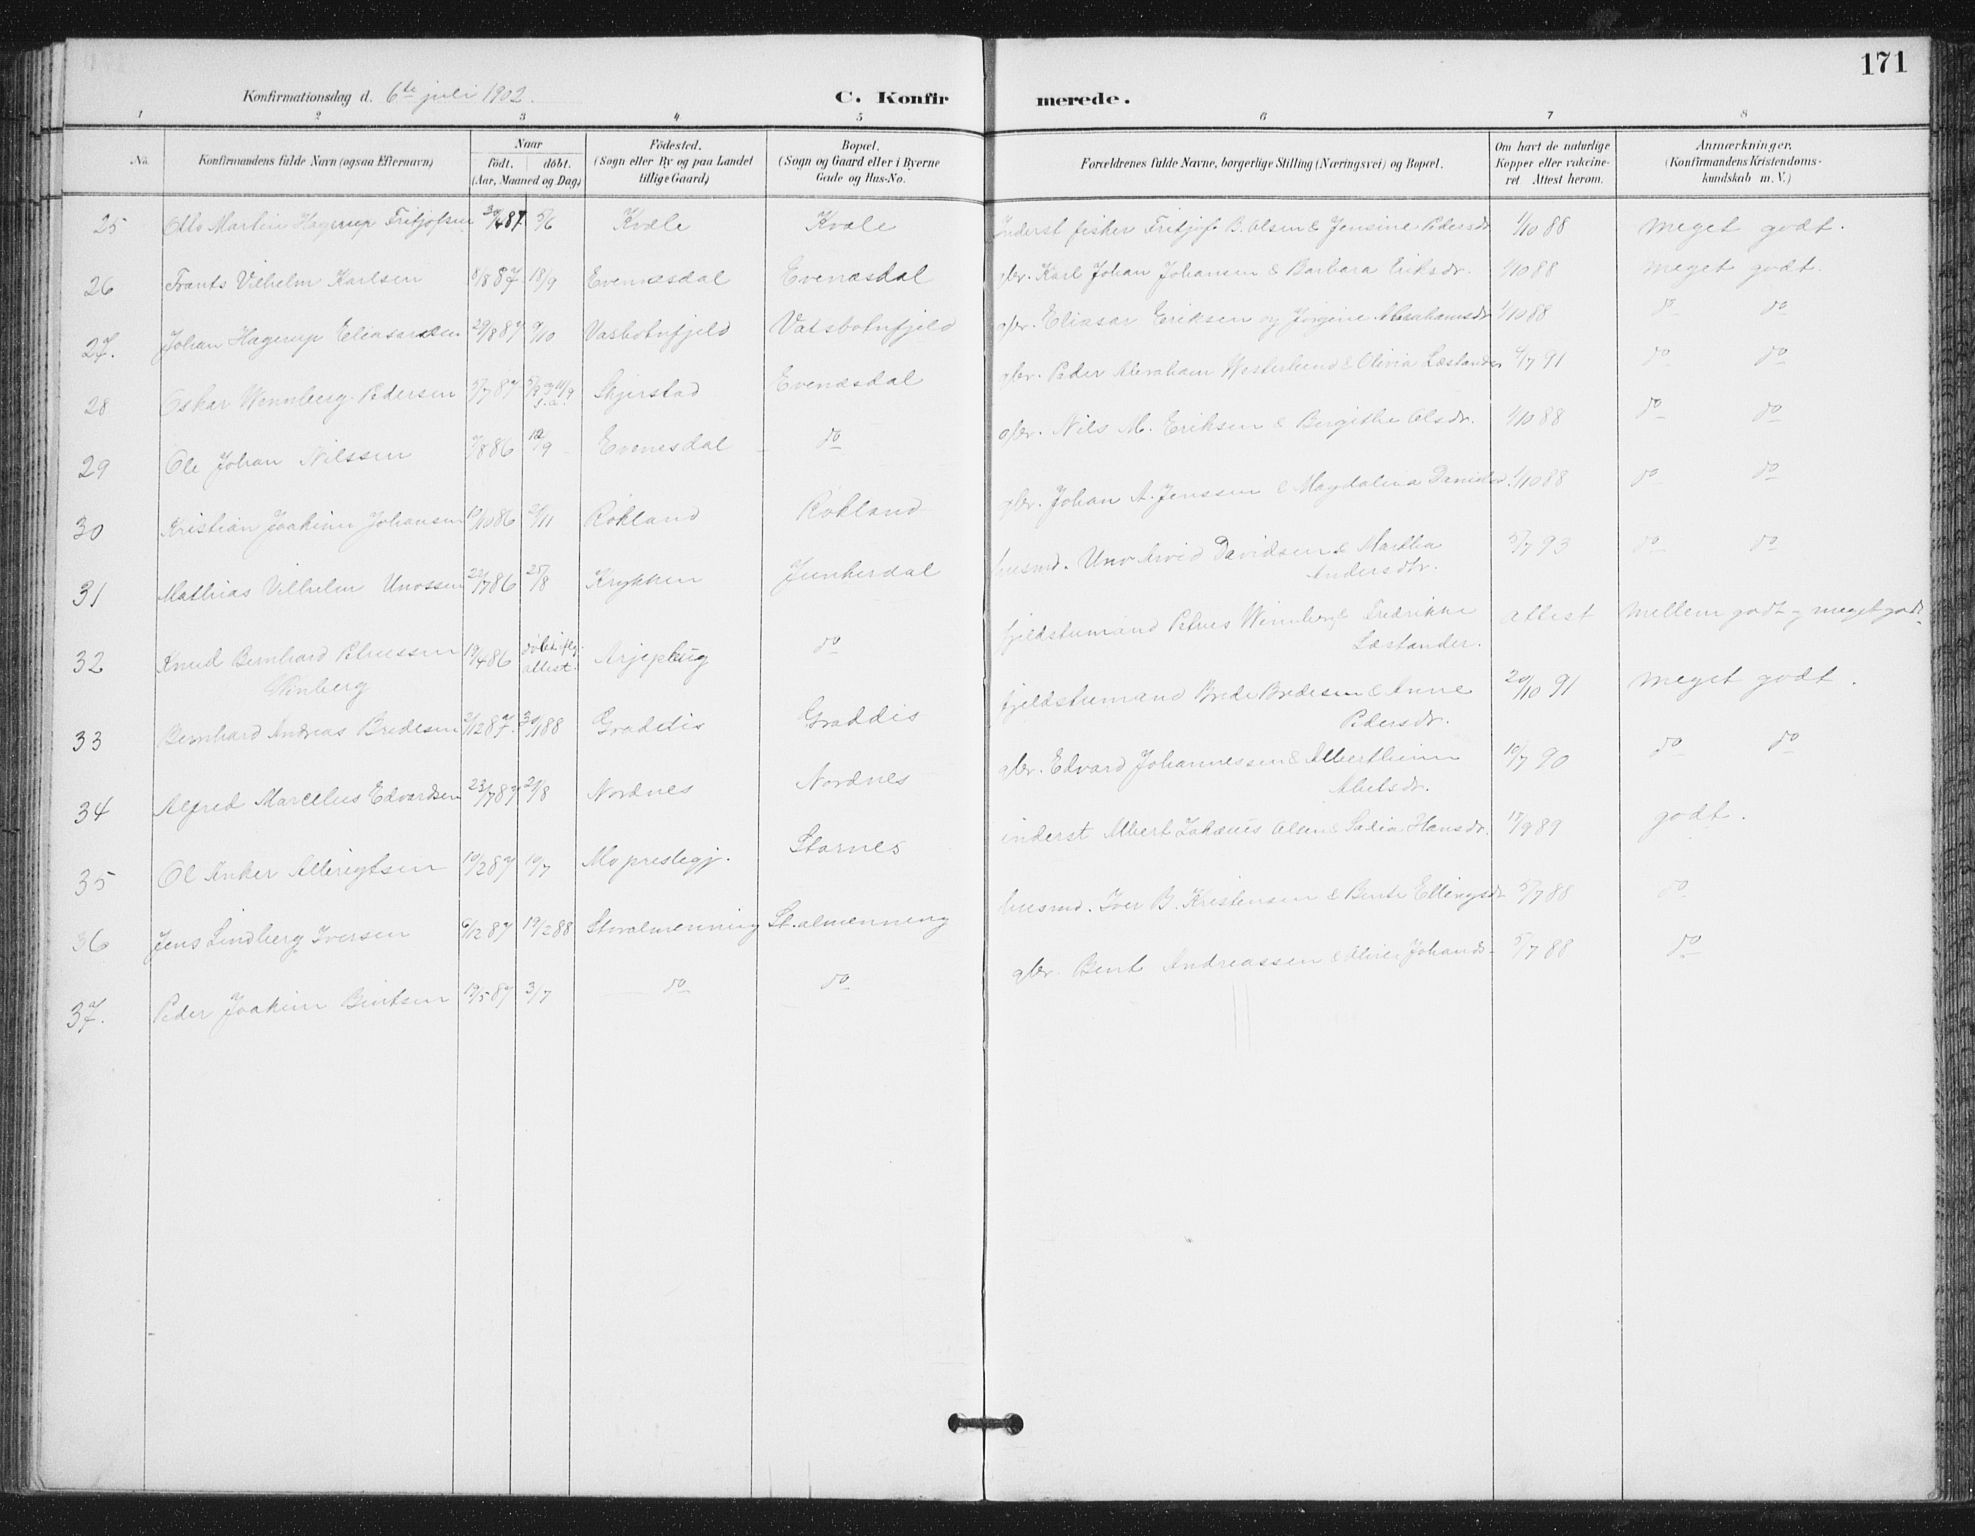 171
Konfirmationsdag d. 6te juli 1902.
C. Konfirmerede.
1 2 3 4 5 6 7 8
No.
Konfirmandens fulde Navn (ogsaa Efternavn)
Naar
födt. döbt.
(Aar, Maaned og Dag)
Födested.
(Sogn eller By og paa Landet
tillige Gaard)
Bopæl.
(Sogn og Gaard eller i Byerne
Gade og Hus-No.
Forældrenes fulde Navne, borgerlige Stilling (Næringsvei) og Bopæl.
Om havt de naturlige
Kopper eller vakcine-
ret. Attest herom.
Anmærkninger.
(Konfirmandens Kristendoms-
kundskab m. V.)
25 Otto Martin Hagerup Fritjofsen 5/6 Kvæle Kvæle Inderst fisker Fritjof B. Olsen & Jensine Pedersdr 1/10 88 meget godt.
26 Frants Vilhelm Karlsen 6/8 87 18/9 Evenæsdal Evenæsdal gbr. Karl Johan Johansen & Barbara Eriksdr. 1/10 88 meget godt.
27. Johan Hagerup Eliasarsen 29/8 87 9/10 Vasbotnfjeld Vatsbotnfjeld gbr. Eliasar Eriksen og Jørgine Abrahamsdr 1/10 88 do do
28 Oskar Wennberg Pedersen 5/7 87 Skjerstad Evenæsdal gbr. Peder Abraham Westerlund & Olivia Læstander 4/7 91 do do
29 Ole Johan Nilssen 7/8 86 12/9 Evenesdal do gbr. Nils M. Eriksen & Bergithe Olsdr. 1/10 88 do do
30 Kristian Joakim Johansen 19/10 86 21/11 Røkland Røkland gbr. Johan A. Jenssen & Magdalena 1/10 88 do do
31 Mathias Vilhelm Unossen 22/7 86 25/8 Krykken Junkerdal husmd. Uno Arvid Davidsen & Martha
Andersdtr. 5/7 93 do do
32 Knud Bernhard Petrussen
Winberg 19/4 86 døbt iflg.
attest. Arjeplug do fjeldstumand Petrus Winnberg & Fredrikke
Læstander. attest mellem godt og meget godt.
33 Bernhard Andreas Bredesen 2/12 87. 30/1 88 Graddis Graddis fjeldstumand Brede Bredesen & Anne
Pedersdr. 20/10 91 meget godt.
34 Alfred Marcelius Edvardsen 23/7 87 21/8 Nordnes Nordnes gbr. Edvard Johannessen & Alberthinn
Abelsdr. 10/7 90 do do
35 Ol Anker Albrigtsen 10/2 87 10/7 Mo prestegj. Stornes inderst Albert Olsen & Hansdr. 17/9 89 godt.
36 Jens Lindberg Iversen 6/12 87 19/2 88 Storalmenning St.almenning husmd. Iver B. Kristensen & Bente Ellingsdr 5/7 88 do
37. Peder Joakim Bentsen 19/5 87 3/7 do do gbr. Bent Andreassen & Johansdr. 5/7 88 do